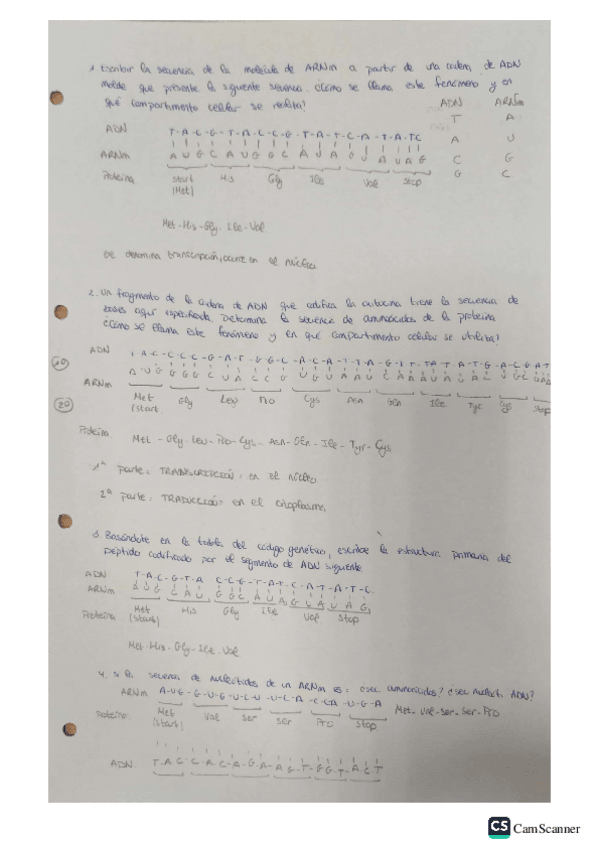 1. Escribir la secuencia de la molécula de ARNm a partir de una cadena de ADN
molde que presente la siguiente secuencia. ¿Cómo se llama este fenómeno y en
qué compartimento celular se realiza?
ADN ARNm
T A
A U
C G
G C
ADN T-A-C-G-T-A-C-C-G-T-A-T-C-A-T-A-TC
ARNm A U G C A U G G C A U A G U A U A G
Proteína Start (Met) His Gly Ile Val Stop
Met-His-Gly-Ile-Val
Se denomina transcripción, ocurre en el núcleo.
2. Un fragmento de la cadena de ADN que codifica la oxitocina tiene la secuencia de
bases aquí especificada. Determina la secuencia de aminoácidos de la proteína
¿Cómo se llama este fenómeno y en qué compartimento celular se realiza?
ADN
ARNm
Met (start) Gly Leu Pro Cys Asn Gln Ile Tyr Cys Stop
Proteína Met-Gly-Leu-Pro-Cys-Asn-Gln-Ile-Tyr-Cys
1ª parte: TRANSCRIPCIÓN: en el núcleo
2ª parte: TRADUCCIÓN: en el citoplasma.
3. Basándote en la tabla del código genético, escribe la estructura primaria del
péptido codificado por el segmento de ADN siguiente
ADN T-A-C-G-T-A C-C-G-T-A-T-C-A-T-A-T-C
ARNm A U G C A U G G C A U A G U A U A G
Proteína Met (Start) His Gly Ile Val Stop
Met-His-Gly-Ile-Val
4. Si la secuencia de nucleótidos de un ARNm es: ¿sec aminoácidos? ¿sec nucleót. ADN?
ARNm A-U-G-G-U-G-U-C-U-U-C-A-C-CA-U-G-A
Met-Val-Ser-Ser-Pro
Proteína Met (Start) Val Ser Ser Pro Stop
ADN T-A-C C-A-C-A-G-A-A G-T-G G T-A C T
CS CamScanner